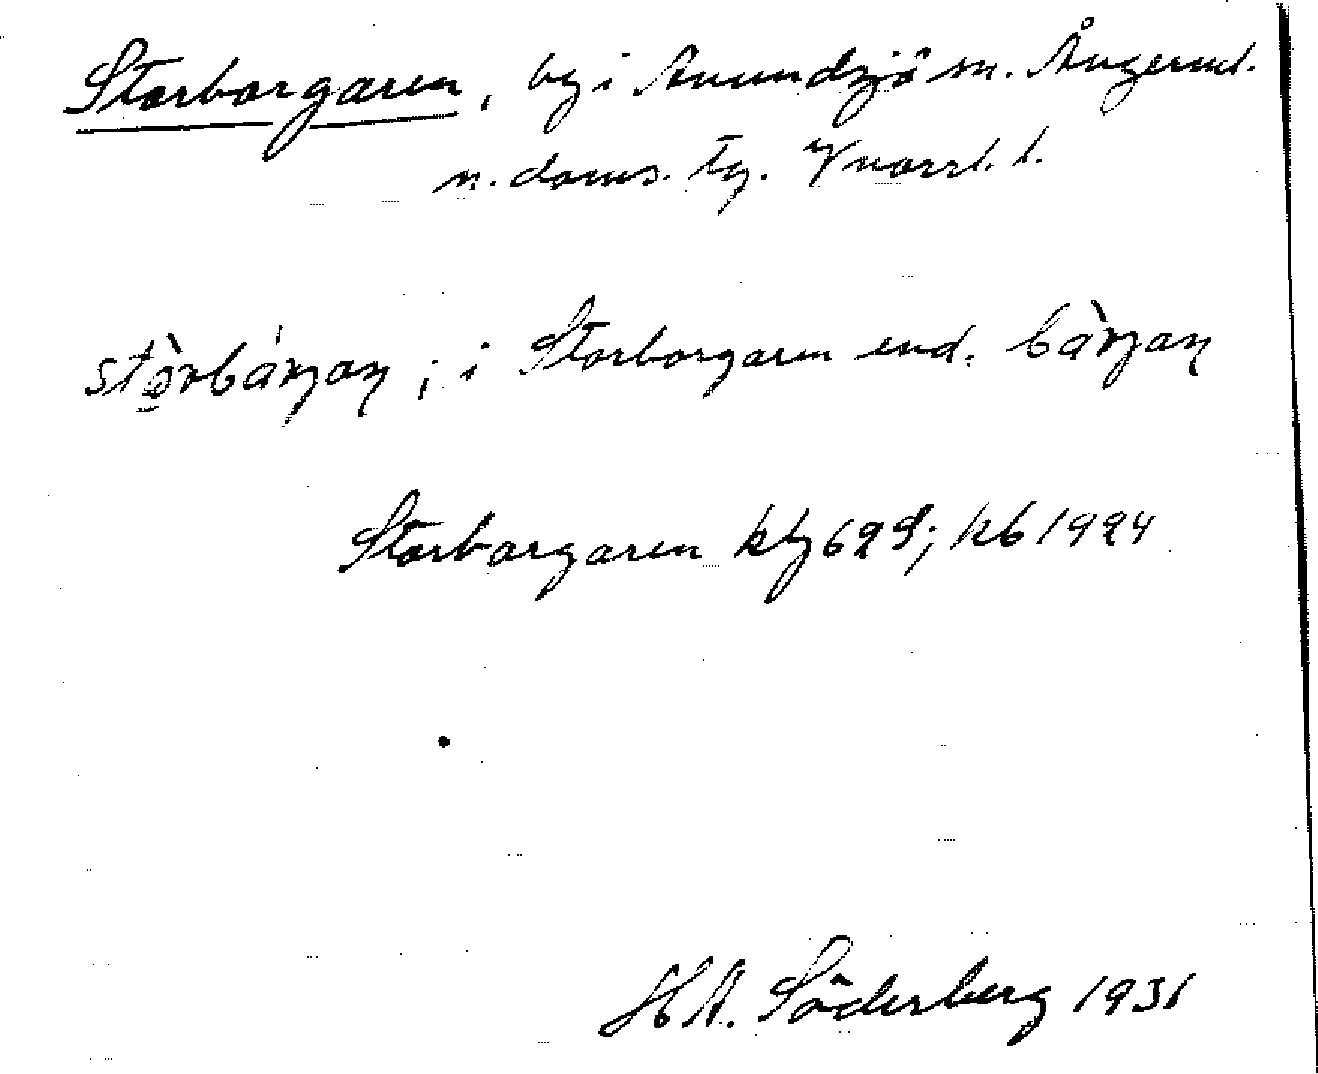 Storborgaren, by i Anundsjö sn. Ångerml.
n. doms. tg. Vnorrl. l.
stòrbárjaŋ; i Storborgaren end. bàrjaŋ
Storborgaren ktg 698; kb 1924
H A. Söderberg 1931